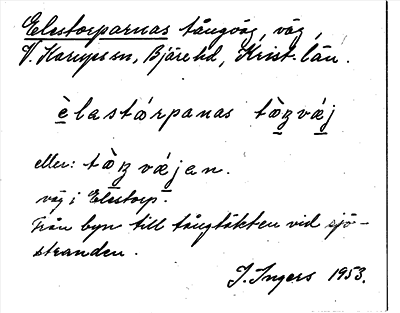 Elestorparnas tångväg, väg,
V. Karups sn, Bjäre hd, Krist. län.
èlastárpanas tàŋvǽj
eller: tàŋvǽjan.
väg i Elestorp.
Från byn till tångtäkten vid sjö-
stranden.
I. Ingers 1953.